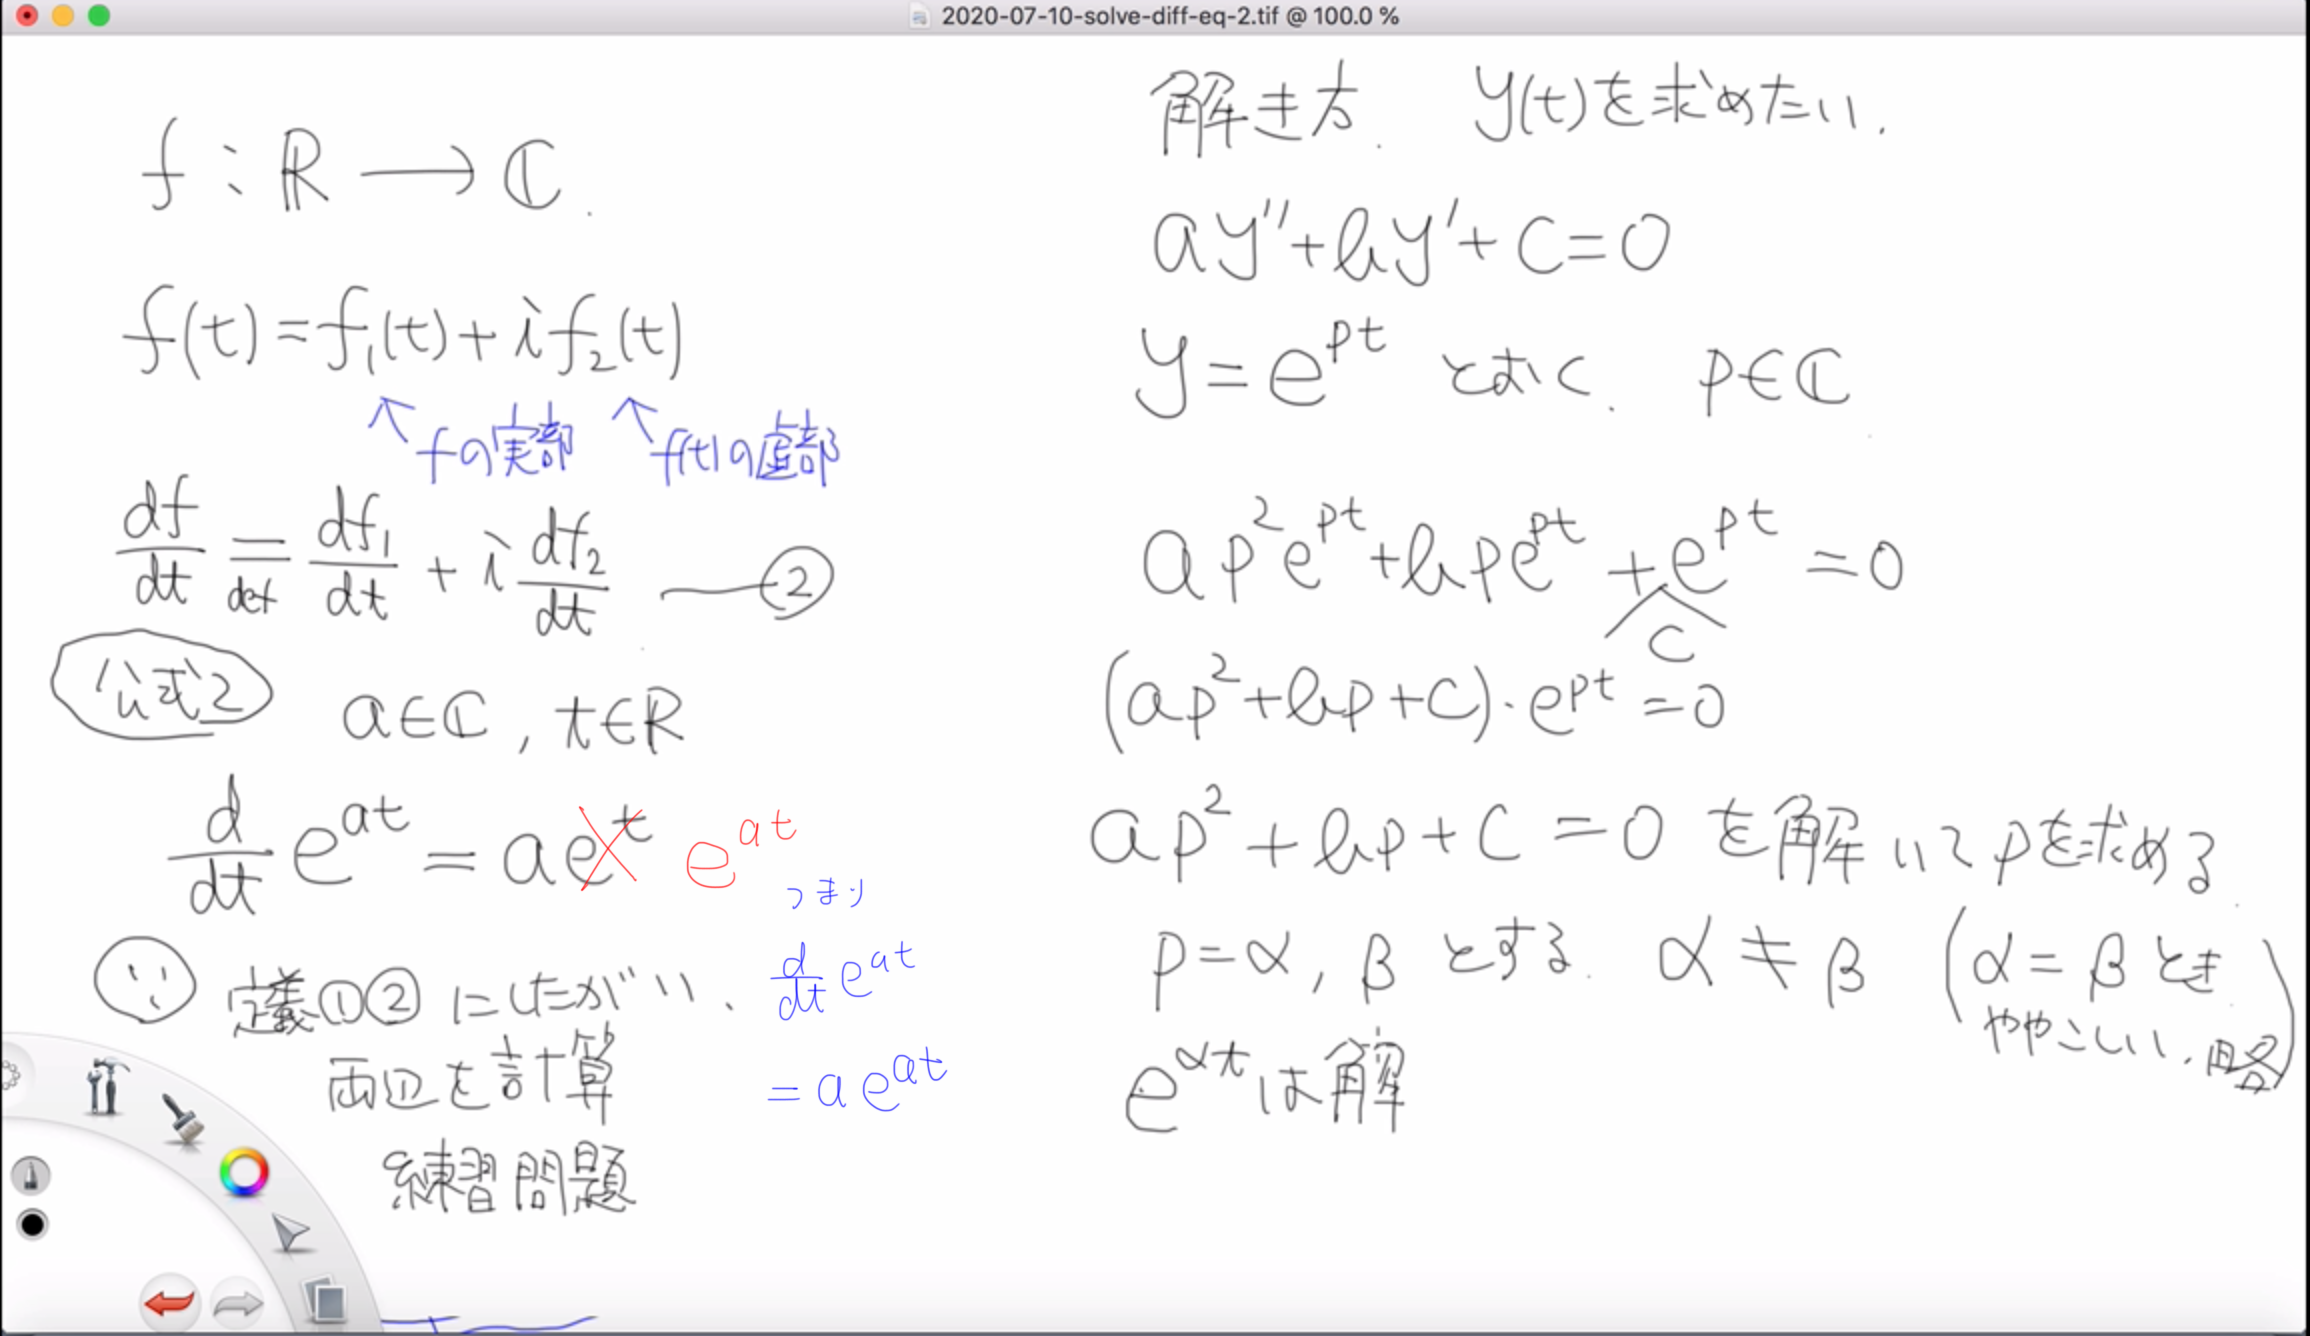 2020-07-10-solve-diff-eq-2.tif @ 100.0 %
f : ℝ ⟶ ℂ.
f(t) = f₁(t) + i f₂(t)
↑ fの実部 ↑ f(t)の虚部
df/dt =def df₁/dt + i df₂/dt ― ②
公式2 a∈ℂ, t∈ℝ
d/dt e^{at} = a e^t e^{at}
つまり
定義①②にしたがい、
両辺を計算
練習問題
d/dt e^{at}
= a e^{at}
解き方. y(t)を求めたい.
ay''+by'+c=0
y = e^{pt} とおく. p∈ℂ
ap²e^{pt}+bpe^{pt}+e^{pt}=0
c
(ap²+bp+c)・e^{pt}=0
ap²+bp+c=0 を解いてpを求める.
p=α, β とする. α≠β (α=βとき
ややこしい. 略)
e^{αt}は解